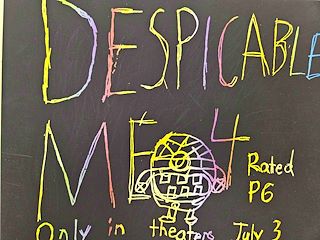 DESPICABLE
ME 4
Rated
PG
Only in theaters July 3